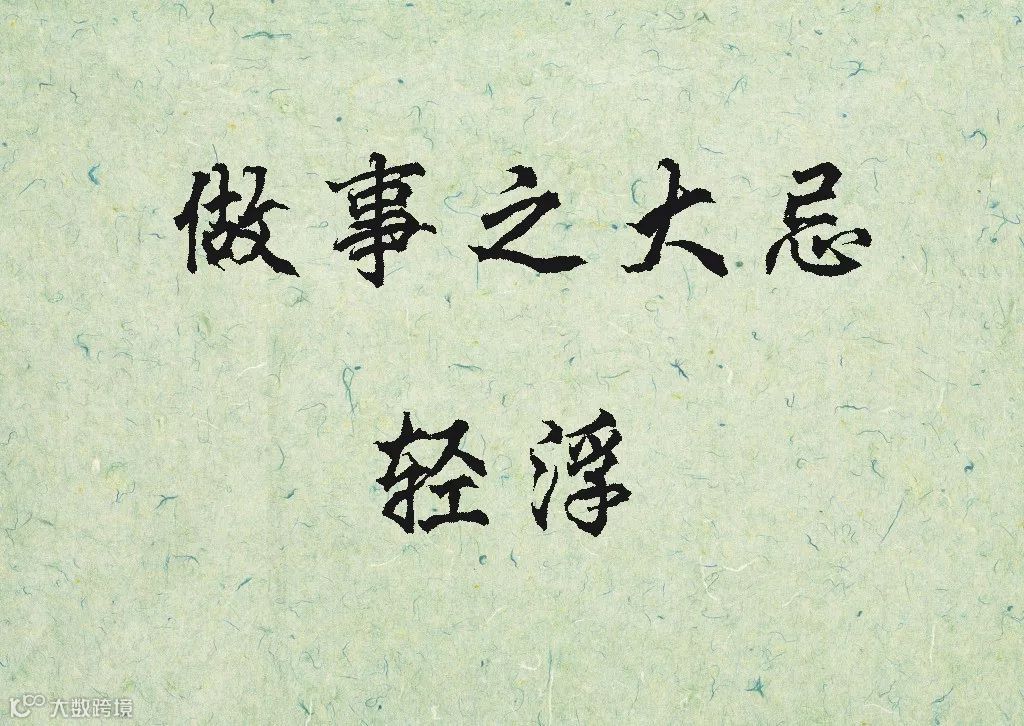 做事之大忌
轻浮
大数跨境